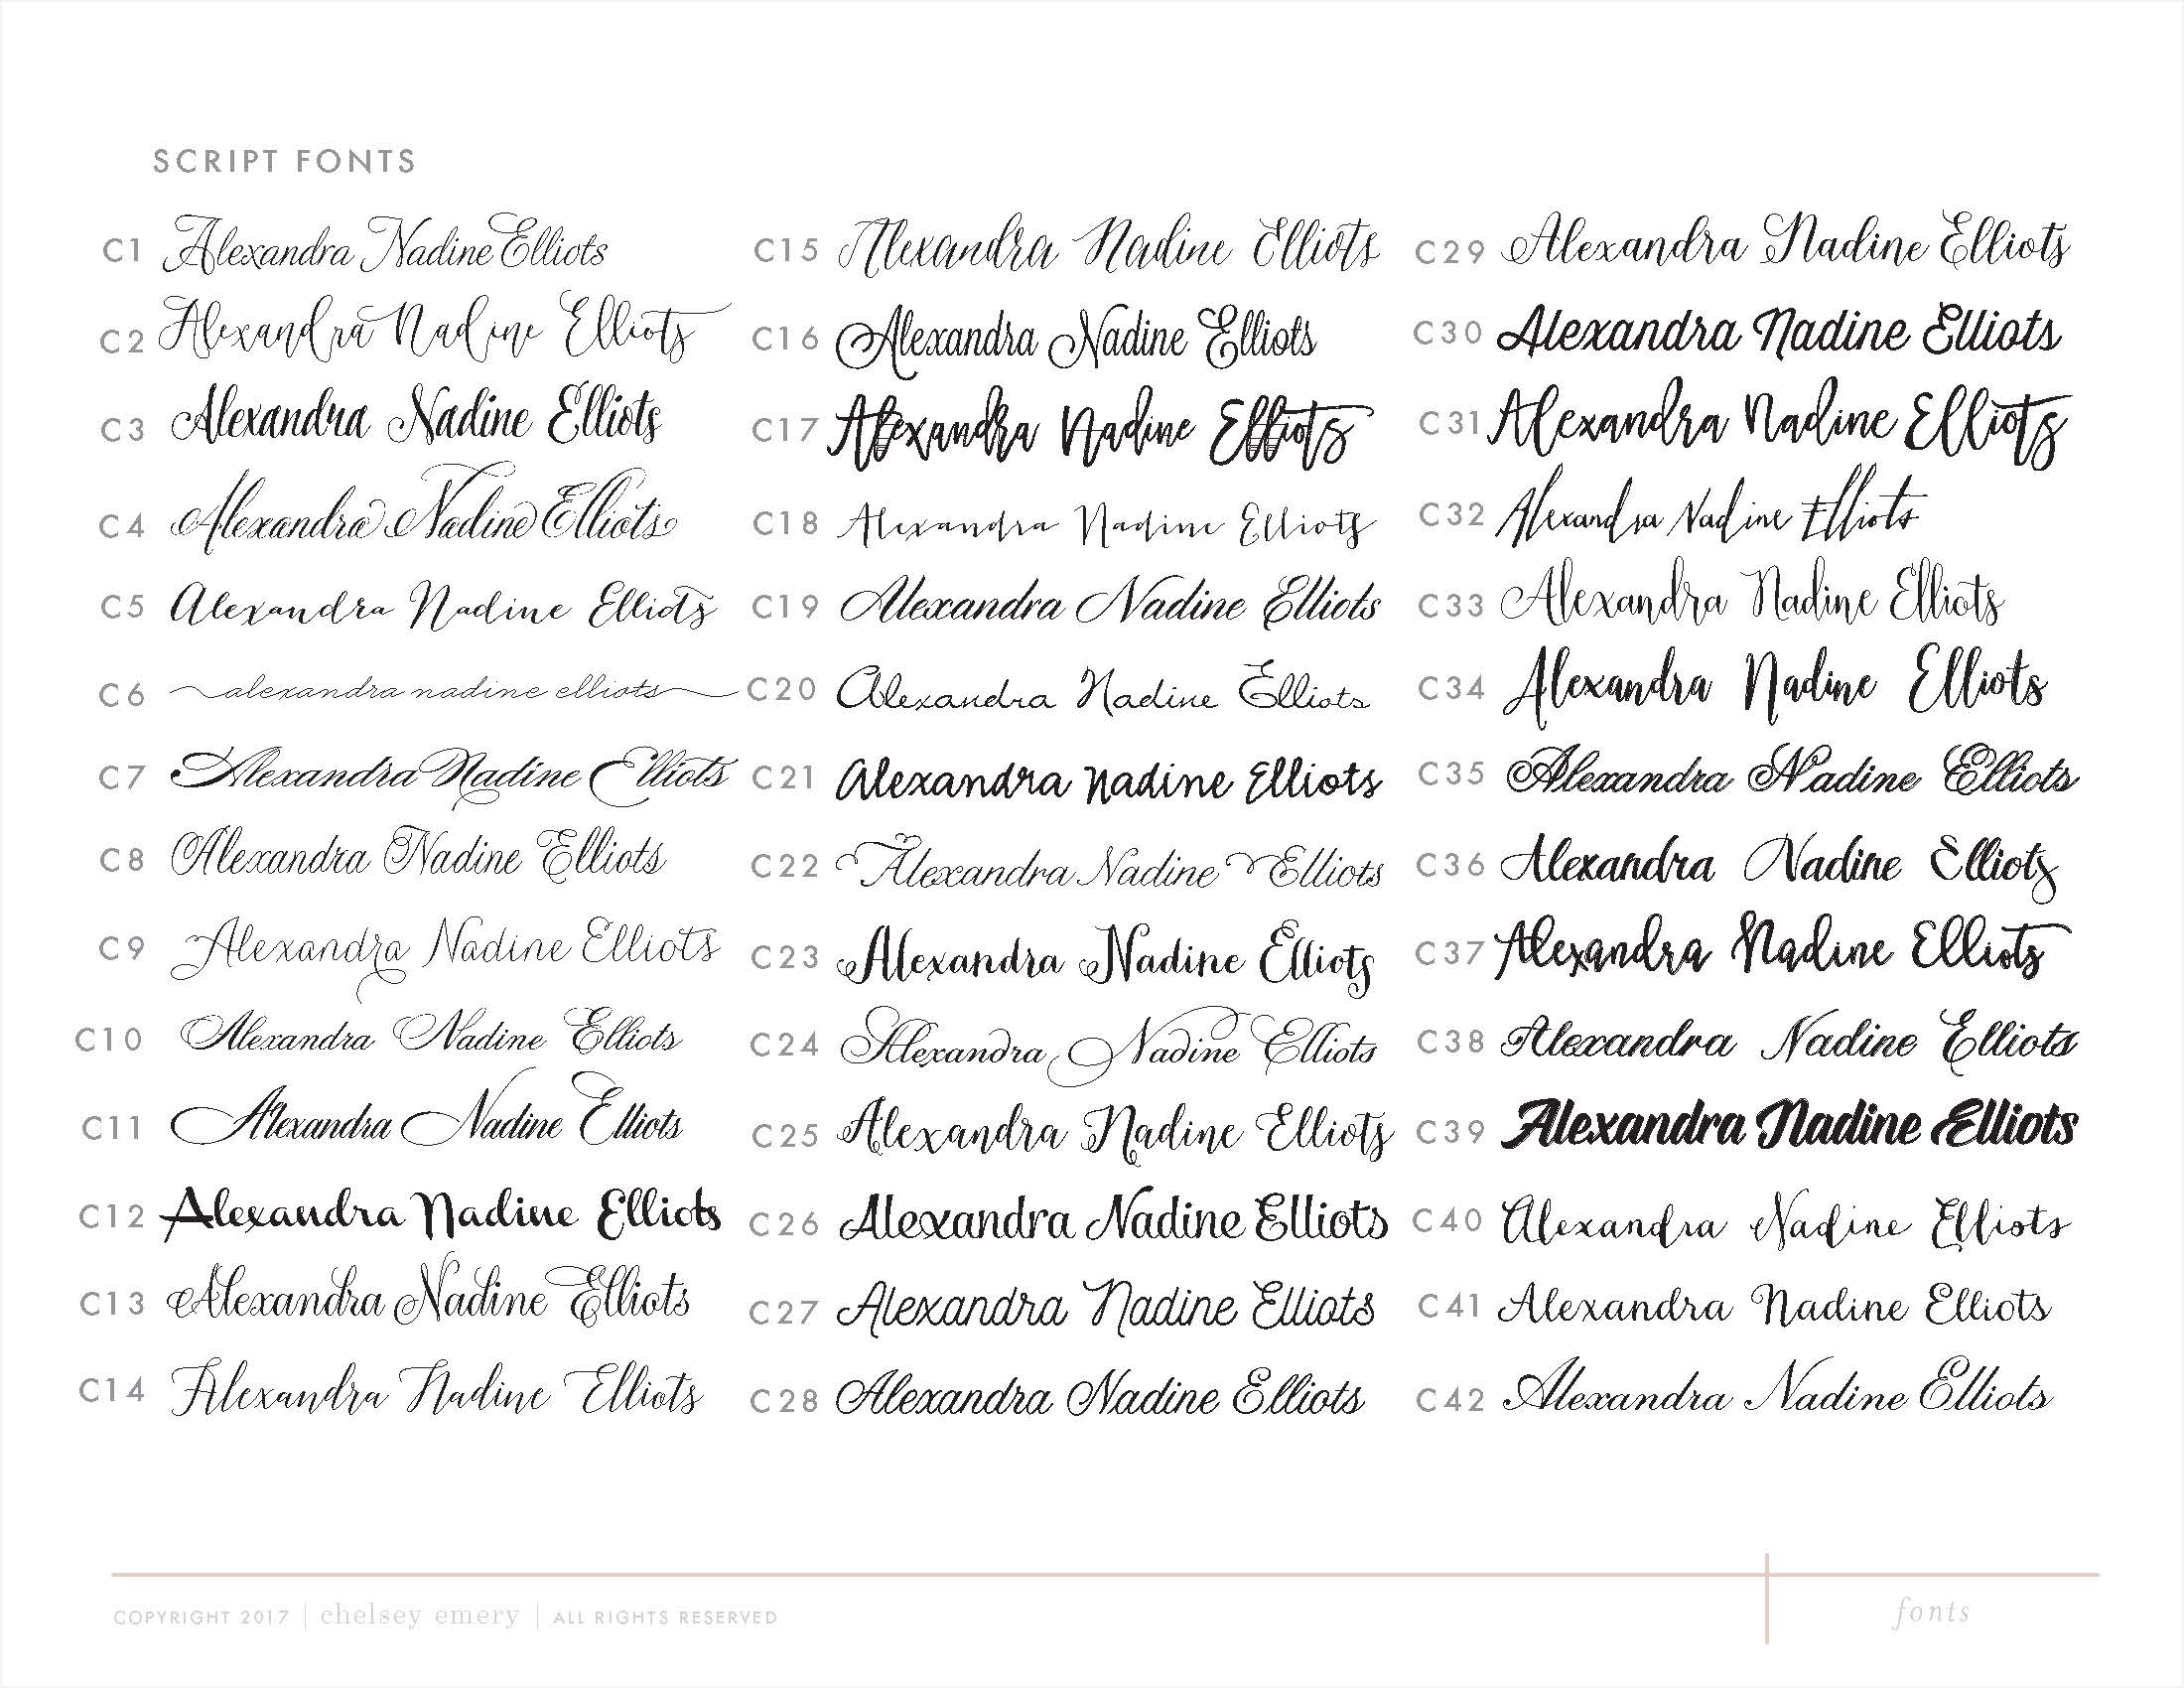 SCRIPT FONTS
C1 Alexandra Nadine Elliots
C2 Alexandra Nadine Elliots
C3 Alexandra Nadine Elliots
C4 Alexandra Nadine Elliots
C5 Alexandra Nadine Elliots
C6 alexandra nadine elliots
C7 Alexandra Nadine Elliots
C8 Alexandra Nadine Elliots
C9 Alexandra Nadine Elliots
C10 Alexandra Nadine Elliots
C11 Alexandra Nadine Elliots
C12 Alexandra Nadine Elliots
C13 Alexandra Nadine Elliots
C14 Alexandra Nadine Elliots
C15 Alexandra Nadine Elliots
C16 Alexandra Nadine Elliots
C17 Alexandra Nadine Elliots
C18 Alexandra Nadine Elliots
C19 Alexandra Nadine Elliots
C20 Alexandra Nadine Elliots
C21 Alexandra Nadine Elliots
C22 Alexandra Nadine Elliots
C23 Alexandra Nadine Elliots
C24 Alexandra Nadine Elliots
C25 Alexandra Nadine Elliots
C26 Alexandra Nadine Elliots
C27 Alexandra Nadine Elliots
C28 Alexandra Nadine Elliots
C29 Alexandra Nadine Elliots
C30 Alexandra Nadine Elliots
C31 Alexandra Nadine Elliots
C32 Alexandra Nadine Elliots
C33 Alexandra Nadine Elliots
C34 Alexandra Nadine Elliots
C35 Alexandra Nadine Elliots
C36 Alexandra Nadine Elliots
C37 Alexandra Nadine Elliots
C38 Alexandra Nadine Elliots
C39 Alexandra Nadine Elliots
C40 Alexandra Nadine Elliots
C41 Alexandra Nadine Elliots
C42 Alexandra Nadine Elliots
COPYRIGHT 2017 | chelsey emery | ALL RIGHTS RESERVED
fonts